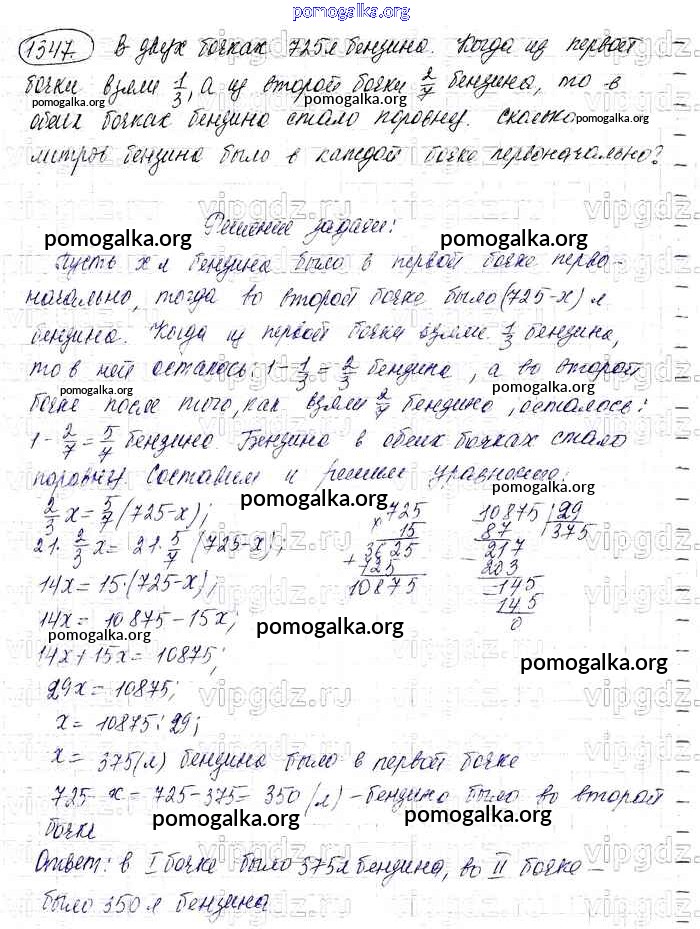 pomogalka.org
1347. В двух бочках 725л бензина. Когда из первой
бочки взяли 1/3, а из второй бочки 2/7 бензина, то в
pomogalka.org pomogalka.org
обеих бочках бензина стало поровну. Сколько
pomogalka.org
литров бензина было в каждой бочке первоначально?
Решение задачи:
pomogalka.org pomogalka.org
Пусть x л бензина было в первой бочке перво-
начально, тогда во второй бочке было (725-x) л
бензина. Когда из первой бочки взяли 1/3 бензина,
то в ней осталось: 1-1/3=2/3 бензина, а во второй
pomogalka.org pomogalka.org
бочке после того, как взяли 2/7 бензина, осталось:
1-2/7=5/7 бензина. Бензина в обеих бочках стало
поровну. Составим и решим уравнение:
pomogalka.org
2/3x=5/7(725-x);
21·2/3x=21·5/7(725-x);
14x=15·(725-x);
14x=10875-15x;
pomogalka.org pomogalka.org
14x+15x=10875;
29x=10875;
x=10875:29;
x=375(л) бензина было в первой бочке
725-x=725-375=350(л)-бензина было во второй
бочке
pomogalka.org pomogalka.org
Ответ: в I бочке было 375л бензина, во II бочке -
было 350л бензина
pomogalka.org pomogalka.org
×725
15
+3625
725
10875
10875|29
87 |375
-217
203
-145
145
0
pomogalka.org
vipgdz.ru